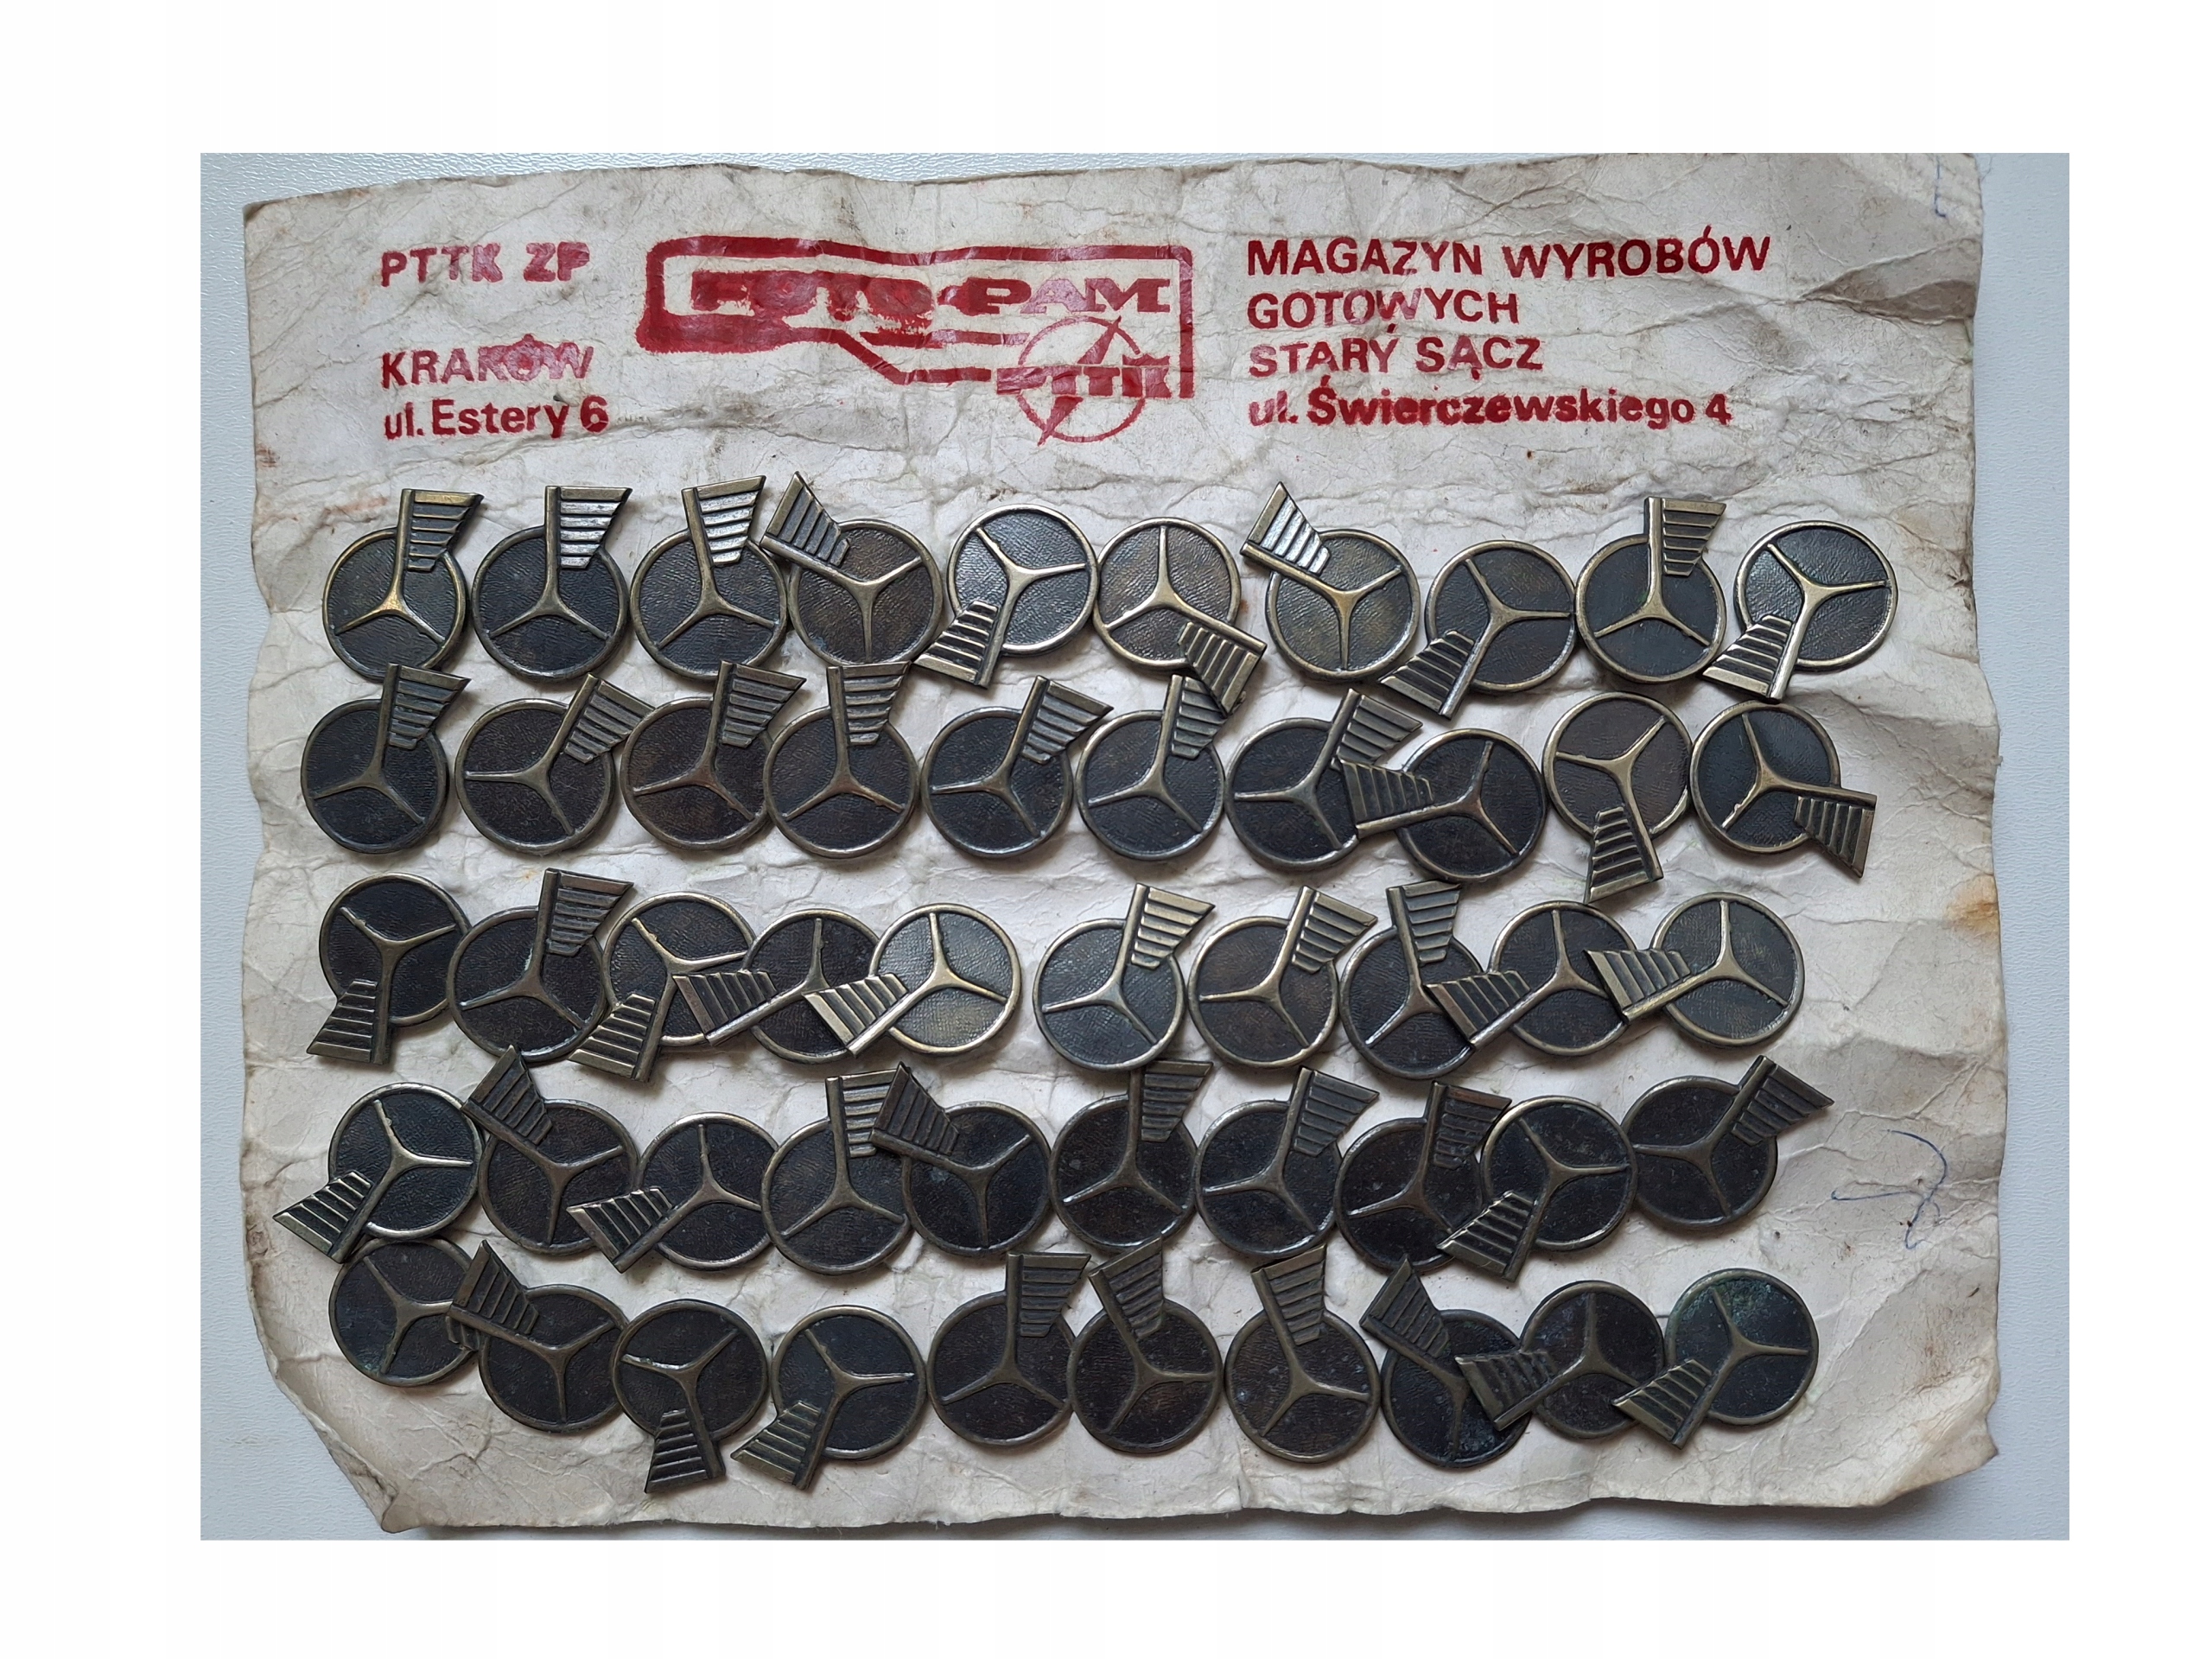 PTTK ZP
KRAKÓW
ul. Estery 6
FOTO-PAM
PTTK
MAGAZYN WYROBÓW
GOTOWYCH
STARY SĄCZ
ul. Świerczewskiego 4